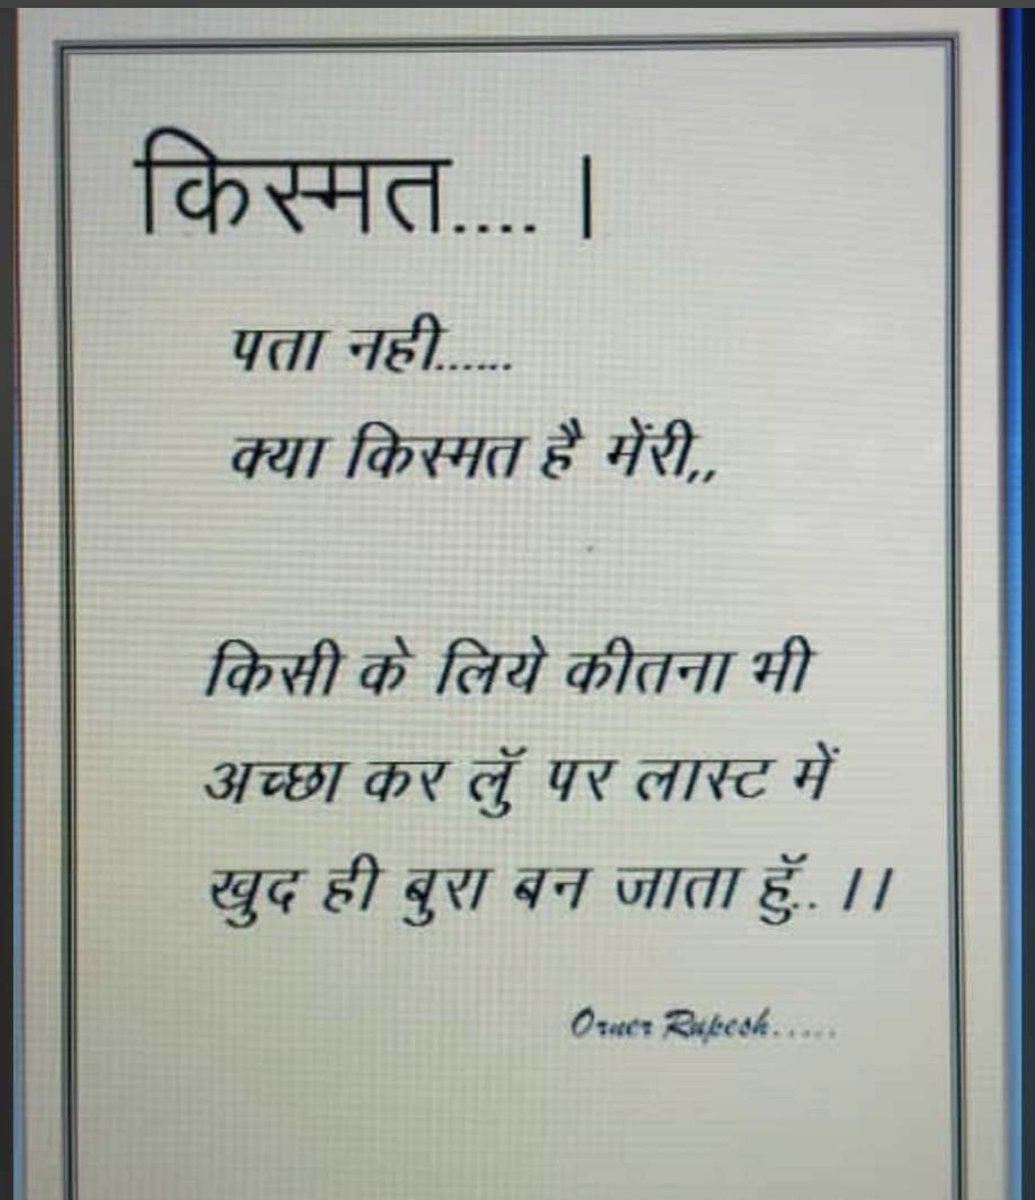 किस्मत.... |
पता नही......
क्या किस्मत है मेंरी,,
किसी के लिये कीतना भी
अच्छा कर लुॅ पर लास्ट में
खुद ही बुरा बन जाता हुॅ.. ।।
Orner Rupesh.....